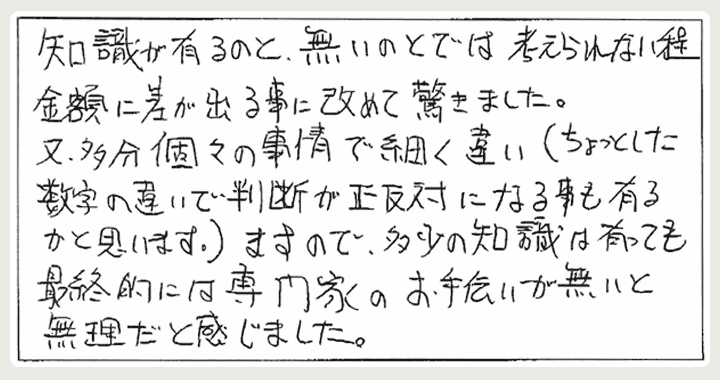 知識が有るのと、無いのとでは考えられない程
金額に差が出る事に改めて驚きました。
又、多分個々の事情で細く違い（ちょっとした
数字の違いで判断が正反対になる事も有る
かと思います。）ますので、多少の知識は有っても
最終的には専門家のお手伝いが無いと
無理だと感じました。